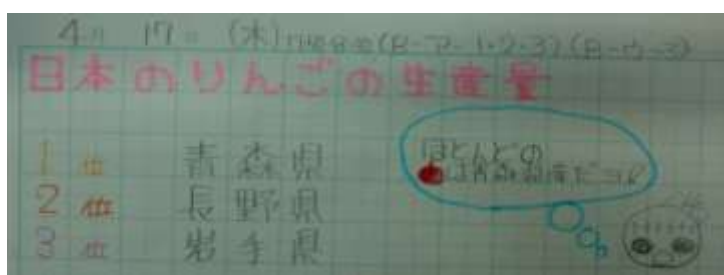 4月 17日 (水)
日本のりんごの生産量
1位 青森県
2位 長野県
3位 岩手県
ほとんどの
は青森県産だョ